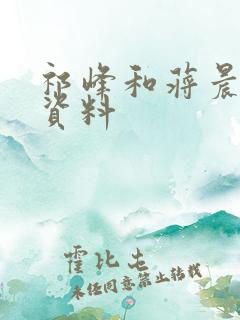 祁峰和蒋晨
资料
霍比屯
未经同意禁止转载